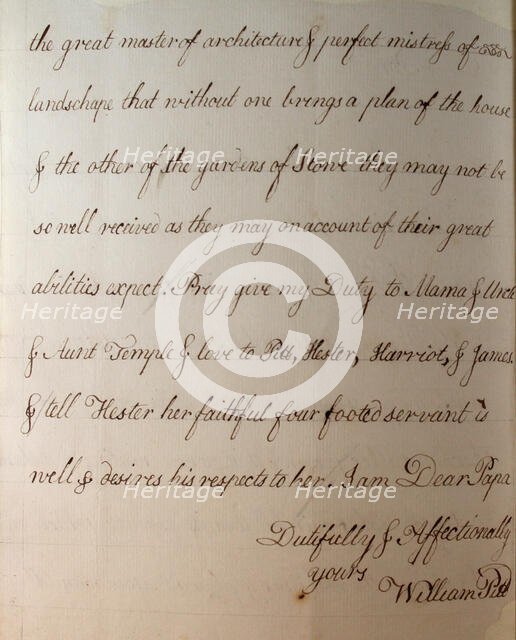 the great master of architecture & perfect mistress of
landschape that without one brings a plan of the house
& the other of the gardens of Stowe they may not be
so well received as they may on account of their great
abilities expect. Pray give my Duty to Mama & Uncle
& Aunt Temple & love to Pitt, Hester, Harriot, & James.
& tell Hester her faithful four footed servant is
well & desires his respects to her. I am Dear Papa
Dutifully & Affectionally
yours
William Pitt
Heritage Heritage Heritage
Heritage Heritage Heritage
Heritage Heritage Heritage
Heritage Heritage Heritage
C